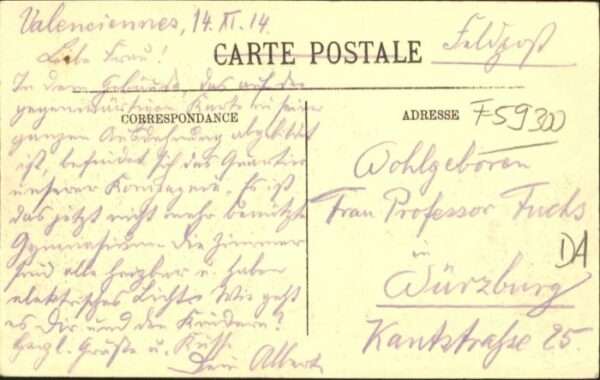 Valenciennes, 14. XI. 14.
Liebe Frau!
CARTE POSTALE
Feldpost
In dem Gebäude, das auf der
gegenwärtigen Karte in seiner
CORRESPONDANCE
ganzen Ausdehnung abgebildet
ist, befindet sich das Quartier
unserer Kompagnie. Es ist
das jetzt nicht mehr benützte
Gymnasium. Die Zimmer
sind alle heizbar u. haben
elektrisches Licht. Wie geht
es Dir und den Kindern?
Herzl. Grüße u. Küsse
Dein Albert
ADRESSE
F-59300
Wohlgeboren
Frau Professor Fuchs
in
DA
Würzburg
Kantstraße 25.